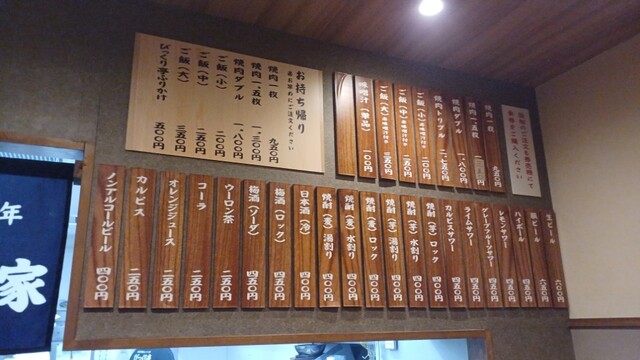 お持ち帰り
焼肉一枚 九五〇円
焼肉一、五枚 一、三〇〇円
焼肉ダブル 一、八〇〇円
ご飯（小） 二〇〇円
ご飯（中） 二五〇円
ご飯（大） 三五〇円
びっくり亭ふりかけ 五〇〇円
焼肉一枚
焼肉一、五枚
焼肉ダブル 一、八〇〇円
焼肉トリプル
ご飯（小） 二〇〇円
ご飯（中） 二五〇円
ご飯（大） 三五〇円
味噌汁（単品） 一〇〇円
生ビール 六〇〇円
瓶ビール 六五〇円
ハイボール 四五〇円
レモンサワー 四五〇円
グレープフルーツサワー 四五〇円
ライムサワー 四五〇円
カルピスサワー 四五〇円
焼酎（芋）ロック 四〇〇円
焼酎（芋）水割り 四〇〇円
焼酎（芋）湯割り 四〇〇円
焼酎（麦）ロック 四〇〇円
焼酎（麦）水割り 四〇〇円
焼酎（麦）湯割り 四〇〇円
日本酒（冷） 四五〇円
梅酒（ロック） 四五〇円
梅酒（ソーダ） 四五〇円
ウーロン茶 二五〇円
コーラ 二五〇円
オレンジジュース 二五〇円
カルピス 二五〇円
ノンアルコールビール 四〇〇円
年
家